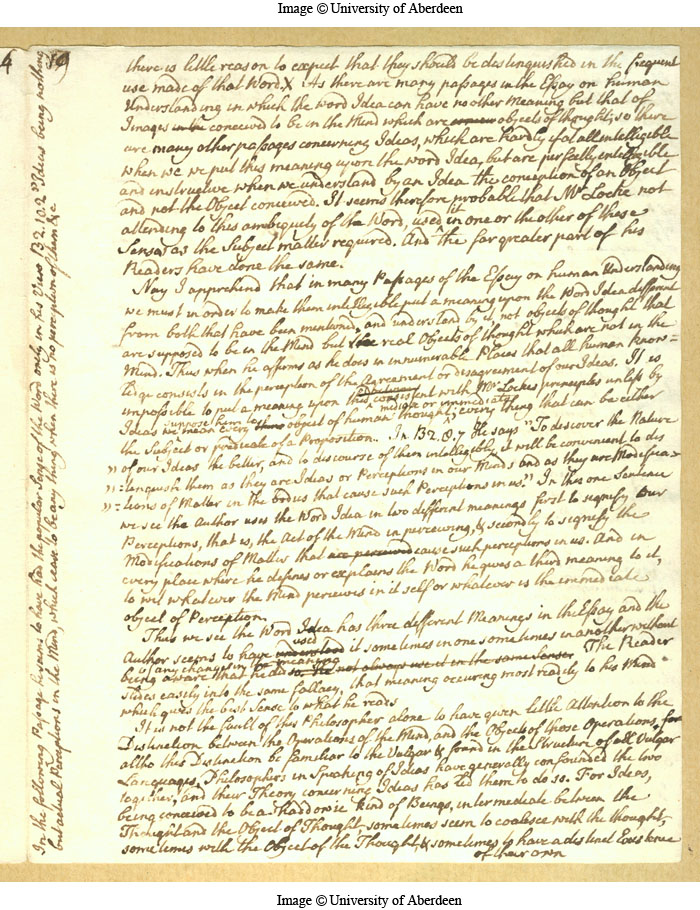 Image © University of Aberdeen
4
19
there is little reason to expect that they should be distinguished in the frequent
use made of that Word X As there are many passages in the Essay on human
Understanding in which the word Idea can have no other Meaning but that of
Images conceived to be in the Mind which are objects of thought; so there
are many other passages concerning Ideas, which are hardly if at all intelligible
when we put this meaning upon the word Idea, but are perfectly intelligible
and instructive when we understand by an Idea the conception of an Object
and not the Object conceived. It seems therefore probable that Mr Locke not
attending to this ambiguity of the Word, used it in one or the other of these
Senses as the Subject matter required. And the far greater part of his
Readers have done the same.
Nay I apprehend that in many Passages of the Essay on human Understanding
we must in order to make them intelligible put a meaning upon the Word Idea different
from both that have been mentioned, and understand by it not objects of thought that
are supposed to be in the Mind but the real Objects of thought which are not in the
Mind. Thus when he affirms as he does in innumerable Places that all human know=
ledge consists in the perception of the Agreement or disagreement of our Ideas. It is
impossible to put a meaning upon this consistent with Mr Lockes principles unless by
Ideas we suppose him to mean every mediate or immediate object of human thought; every thing that can be either
the Subject or predicate of a Proposition. In B2. C8. 7 He says "To discover the Nature
" of our Ideas the better, and to discourse of them intelligibly it will be convenient to dis
"=tinguish them as they are Ideas or Perceptions in our Minds and as they are Modifica=
"=tions of Matter in the bodies that cause such Perceptions in us." In this one Sentence
we see the Author uses the Word Idea in two different meanings, first to signify our
Perceptions, that is, the Act of the Mind in perceiving, & secondly to signify the
Modifications of Matter that are perceived cause such perceptions in us. And in
every place where he defines or explains the Word he gives a third meaning to it,
to wit whatever the Mind perceives in it self or whatever is the immediate
object of Perception.
Thus we see the Word Idea has three different Meanings in the Essay and the
Author seems to have understood used it sometimes in one sometimes in another without
being aware that he did so, he not always use it in the same Sense. of any change in its meaning The Reader
slides easily into the same fallacy, that meaning occuring most readily to his Mind
which gives the best Sense to what he reads
It is not the fault of this Philosopher alone to have given little Attention to the
Distinction between the Operations of the Mind, and the Objects of those Operations, for
altho this Distinction be familiar to the Vulgar & found in the Structure of all Vulgar
Languages, Philosophers in Speaking of Ideas have generally confounded the two
together, and their Theory concerning Ideas has led them to do so. For Ideas,
being conceived to be a Shaddowie kind of Beings, intermediate between the
Thought and the Object of Thought, sometimes seem to coalesce with the thought,
sometimes with the Object of the Thought, & sometimes to have a distinct Existence
of their own
In the following Passage he seems to have had the popular Sense of the Word only in his View B2. 10. 2 "Ideas being nothing
but actual Perceptions in the Mind, which cease to be any thing when there is no perception of them &c
Image © University of Aberdeen